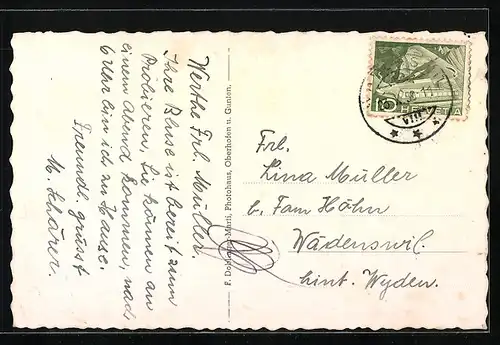 Werthe Frl. Müller.
Ihre Bluse ist bereit zum
Probieren, Sie können an
einem Abend kommen, nach
6 Uhr bin ich zu Hause.
Freundl. grüsst
M. Schärer.
Marti, Photohaus, Oberhofen u. Gunten.
Frl.
Lina Müller
b. Fam Höhn
Wädenswil.
hint. Wyden.
10